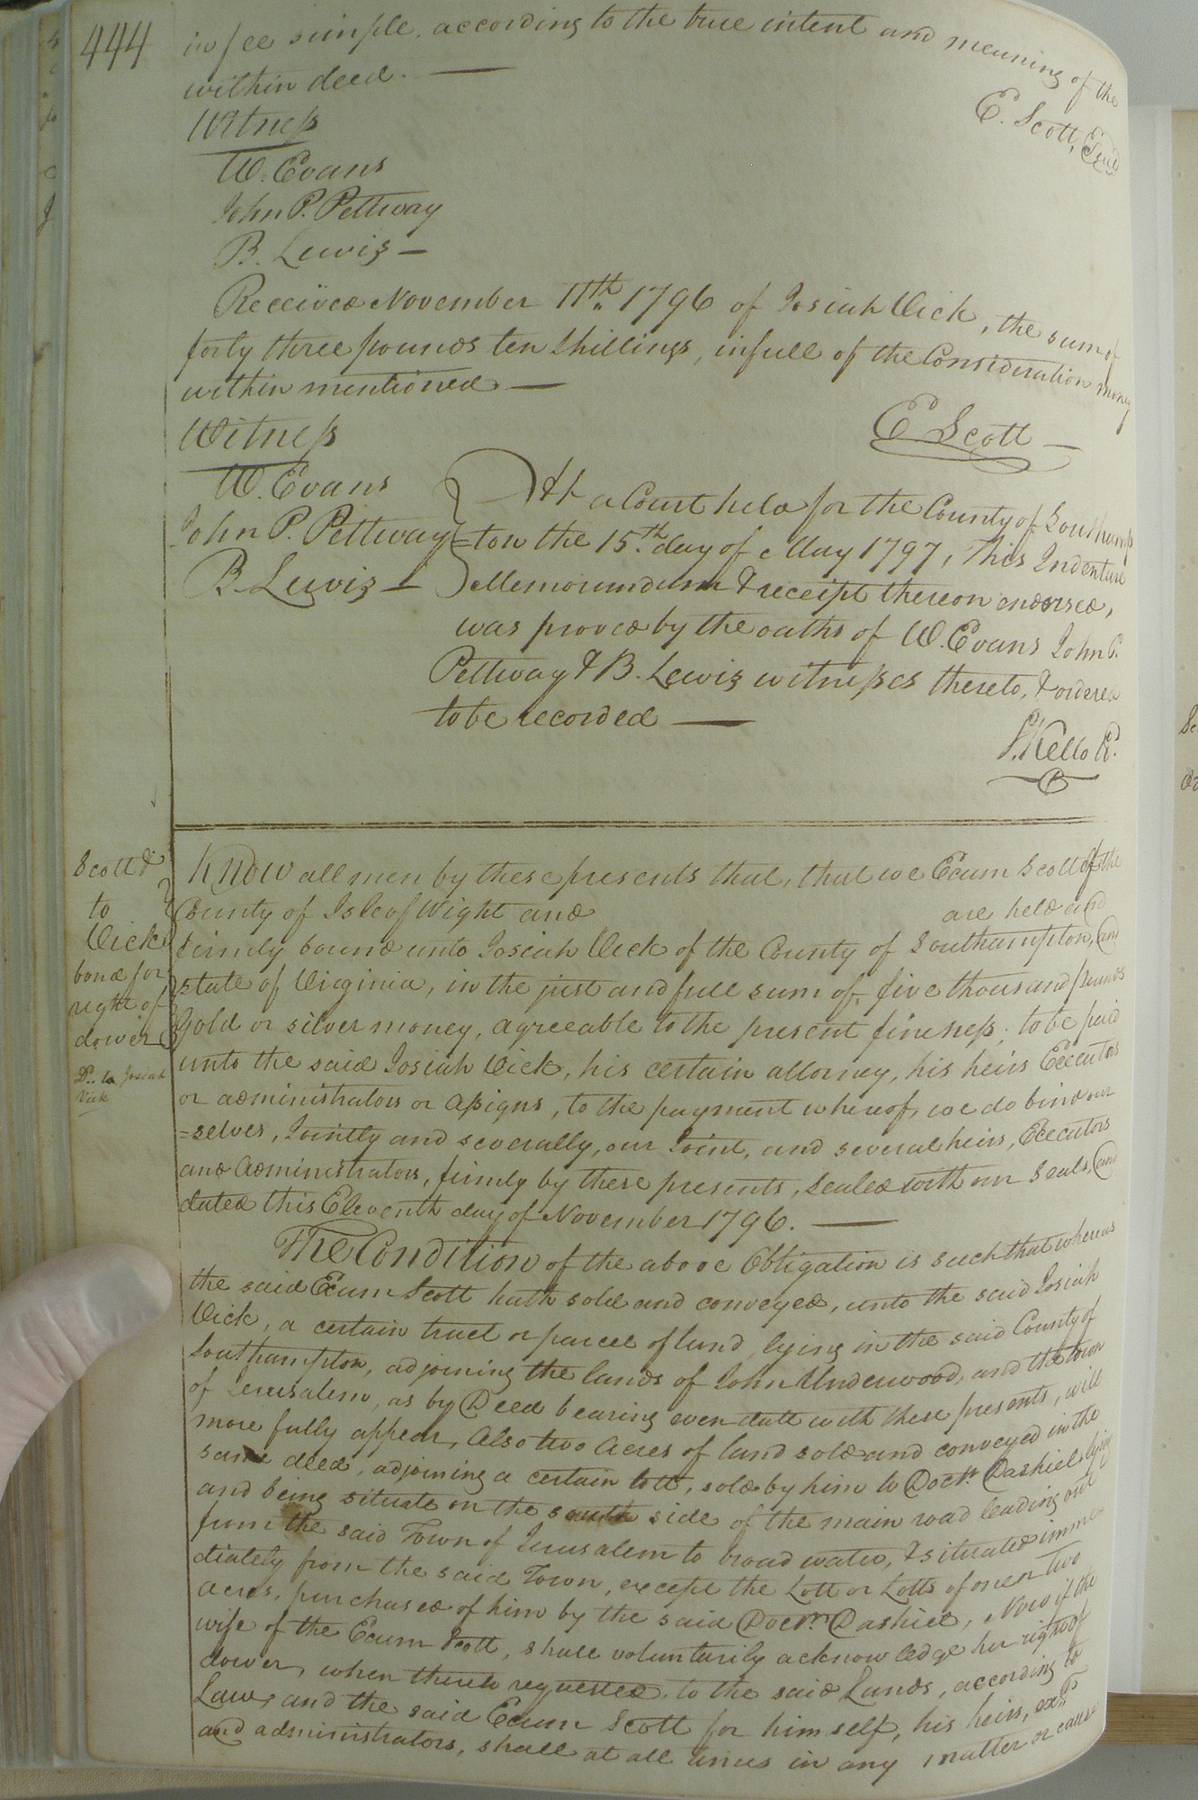 444
in fee simple, according to the true intent and meaning of the
within deed. —
Witness
W. Evans
John P. Pettway
B. Lewis —
E. Scott,
Received November 11th 1796 of Josiah Vick, the sum of
forty three pounds ten shillings, infull of the Consideration money
within mentioned —
E Scott —
Witness
W. Evans
John P. Pettway
B. Lewis —
At a Court held for the County of Southamp
=ton the 15th day of May 1797, This Indenture
Memorandum & receipt thereon endorsed,
was proved by the oaths of W. Evans John P.
Pettway & B. Lewis witnesses thereto, & ordered
to be recorded —
S. Kello
Scott &
to
Vick
bond for
right of
dower
Dd. to Josiah
Vick
Know all men by these presents that, that we Exum Scott of the
County of Isle of Wight and are held and
firmly bound unto Josiah Vick of the County of Southampton, and
state of Virginia, in the just and full sum of, five thousand pounds
Gold or silver money, agreeable to the present fineness, to be paid
unto the said Josiah Vick, his certain attorney, his heirs Executors
or administrators or Assigns, to the payment whereof, we do bind our
=selves, Jointly and severally, our Joint, and several heirs, Executors
and Administrators, firmly by these presents, sealed with our seals, and
dated this Eleventh day of November 1796. —
The Condition of the above Obligation is such that whereas
the said Exum Scott hath sold and conveyed, unto the said Josiah
Vick, a certain tract or parcel of land, lying in the said County of
Southampton, adjoining the lands of John Underwood, and the town
of Jerusalem, as by Deed bearing even date with these presents, will
more fully appear, Also two Acres of land sold and conveyed in the
same deed, adjoining a certain lott, sold by him to Doctr. Dashiel lying
and being situate on the south side of the main road leading out
from the said Town of Jerusalem to broad water, & situated imme
diately from the said Town, except the Lott or Lotts of one or two
acres, purchased of him by the said Doctr. Dashiel, Now if the
wife of the Exum Scott, shall voluntarily acknowledge her right of
dower, when thereto requested, to the said Lands, according to
Law, and the said Exum Scott for himself, his heirs, exrs
and administrators, shall at all times in any matter or cause